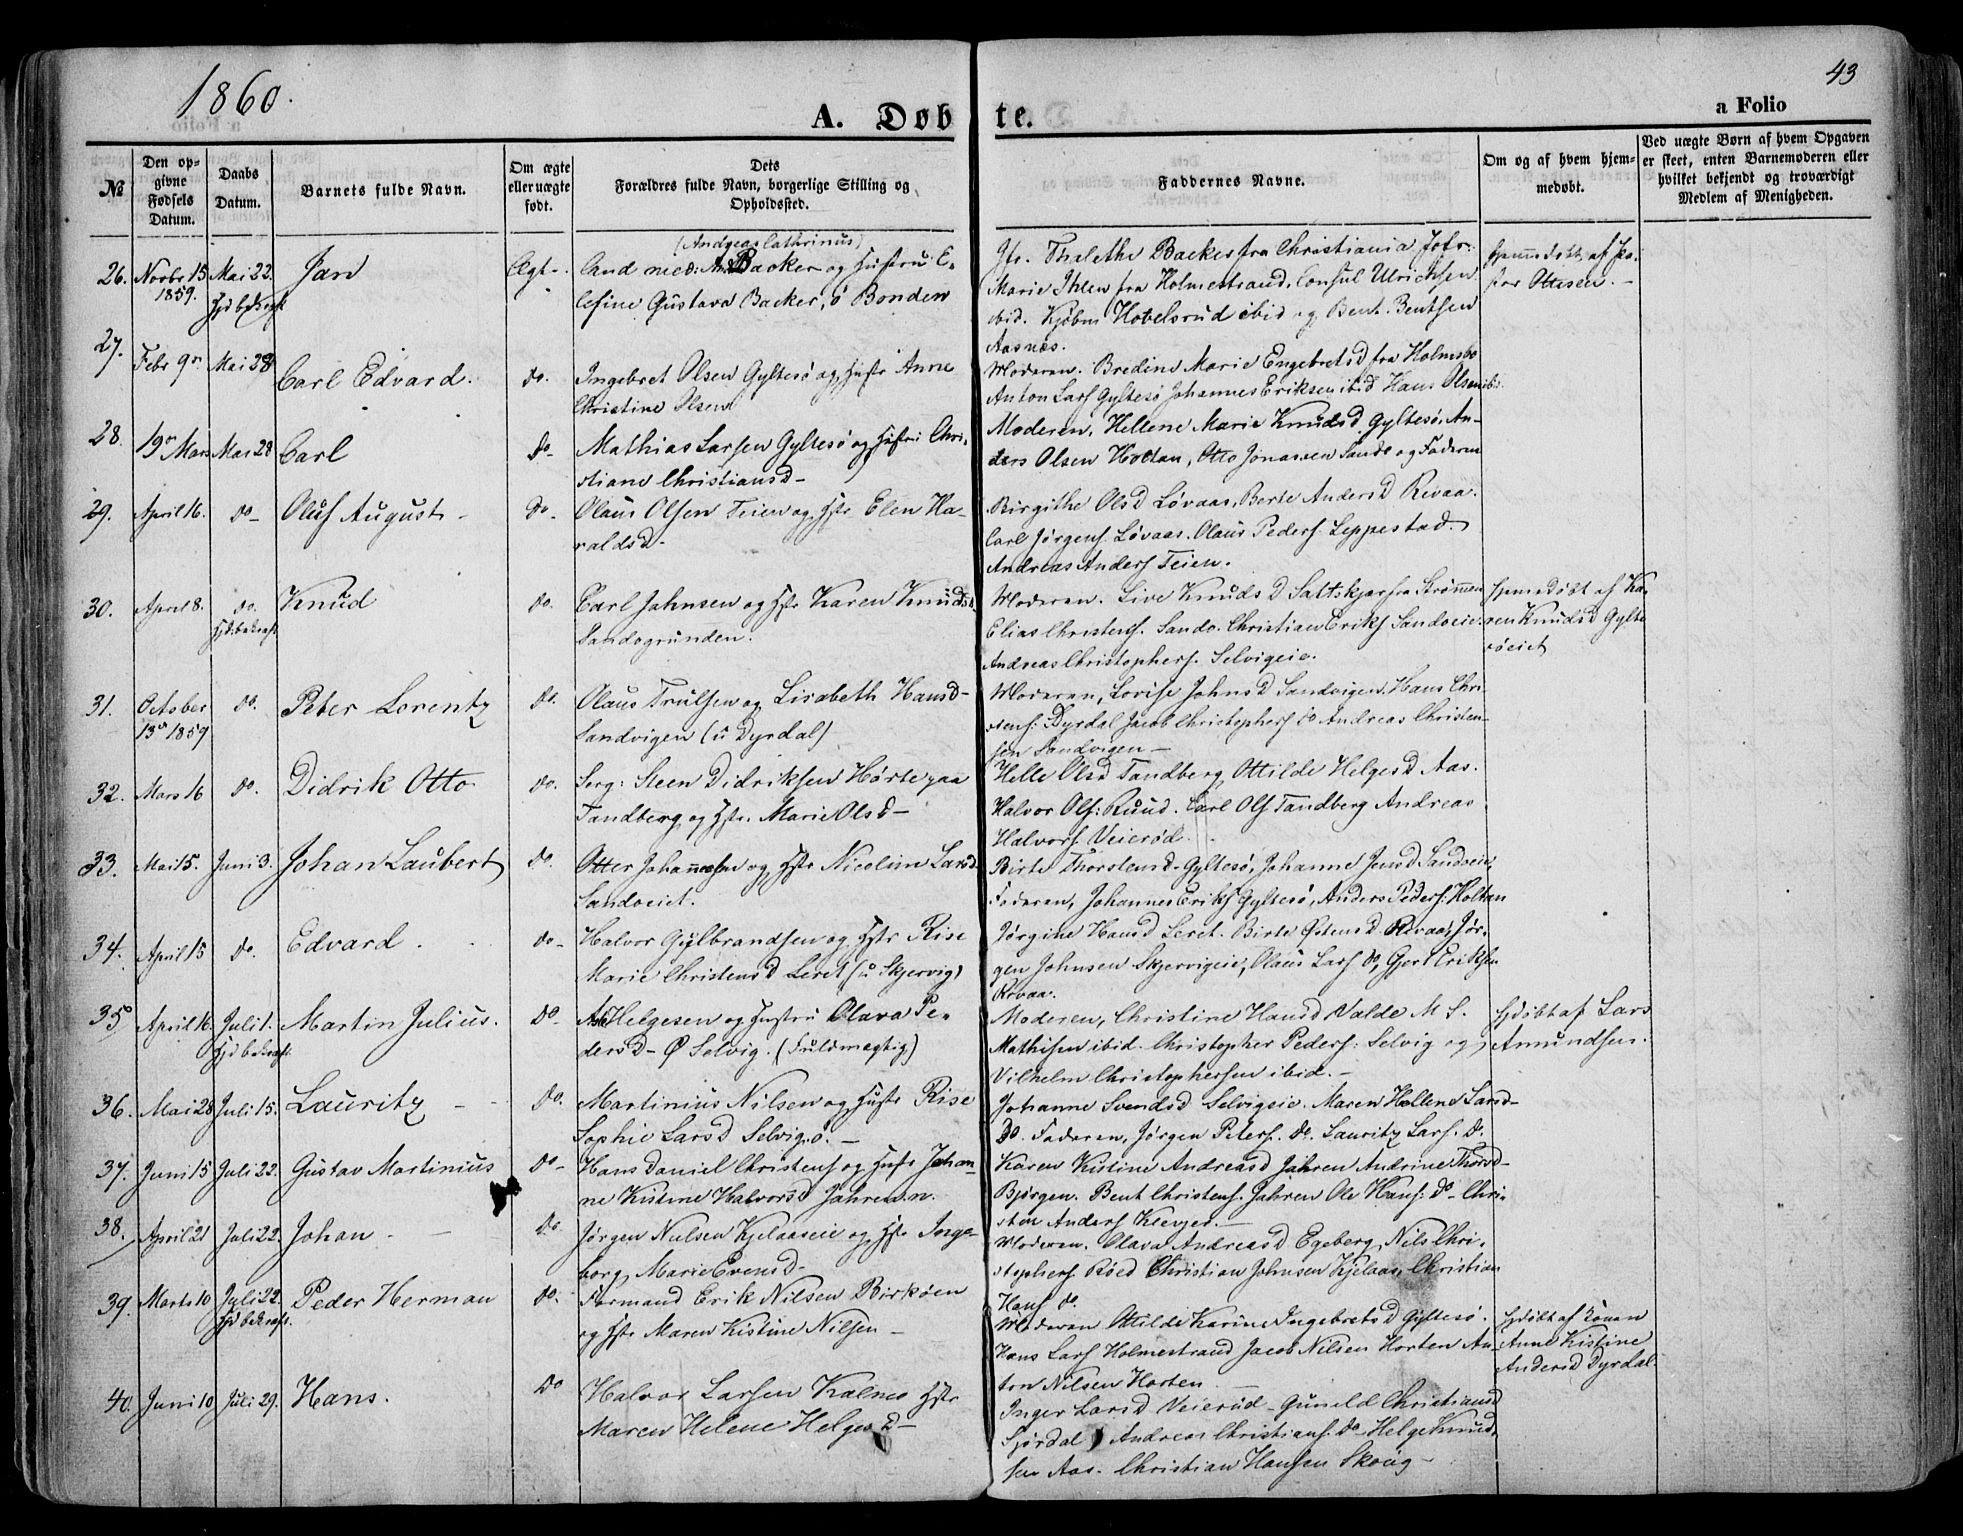 1860.
43
A. Døbte.
a Folio
№
Den op-
givne
Fødsels
Datum.
Daabs
Datum.
Barnets fulde Navn.
Om ægte
eller uægte
født.
Dets
Forældres fulde Navn, borgerlige Stilling og
Opholdssted.
Faddernes Navne.
Om og af hvem hjem-
medøbt.
Ved uægte Børn af hvem Opgaven
er skeet, enten Barnemoderen eller
hvilket bekjendt og troværdigt
Medlem af Menigheden.
26. Novbr 15 1859. Mai 22. Jan Ægt.
(Andreas Cathrinus)
Cand med: Backer og Hustru E-
lefine Gustava Backer, ø Bonden
Jfr. Thalethe Backer fra Christiania, Jofr.
Marie Ihlen fra Holmestrand, Consul Ulrichsen
ibid. Kjøbm Hovelsrud ibid og Bent Bentsen
Aasnes.
Hjemmedøbt af
Ottesen.
27. Febr 9de Mai 28 Carl Edvard. do.
Ingebret Olsen Gyltesø og Hustr Anne
Christine Olsen
Moderen. Bredine Marie Engebretsd fra Holmsbo
Anton Lars Gyltesø Johannes Eriksen ibid Hans Olsen ibid.
28. 19de Mars Mai 28 Carl Do
Mathias Larsen Gyltesø og Hustru Chri-
stiane Christiansd
Moderen, Hellene Marie Knudsd Gyltesø, An-
ders Olsen Holtan, Otto Jonassen Sande og Faderen
29. April 16. do Oluf August do
Olaus Olsen Teien og Hstr Elen Ha-
raldsd.
Birgithe Olsd Løvaas, Berte Andersd Revaa.
Carl Jørgens. Løvaas. Olaus Peders. Leppestad.
Andreas Anders Teien.
30. April 8. do. Hjd: bekræft Knud do.
Carl Johnsen og Hstr Karen Knudsd.
Sandvgrunden.
Moderen. Live Knudsd fra Strømmen
Elias Christens. Sande. Christian Eriks Sandveie.
Andreas Christophers. Selvigeie.
Hjemmedøbt af Ka-
ren Knudsd Gylte
søeiet
31. October 13de 1859 do. Peter Lorentz do.
Olaus Trulsen og Lisabeth Hansd
Sandvigen (u Dyrdal)
Moderen, Lovise Johnsd Sandvigen, Hans Chri-
stens: Dyrdal Jacob Christophers do Andreas Christen-
sen Sandvigen
32. Mars 16 do. Didrik Otto do.
Serg: Steen Didriksen Hørte paa
Tandberg og Hstr. Marie Olsd
Helle Olsd Tandberg, Ottilde Helgesd Aas.
Halvor Ols: Ruud. Carl Ols Tandberg Andreas
Halvors Veierød.
33. Mai 15. Juni 3. Johan Laubert do.
Otter Johannesen og Hstr Nicoline Larsd
Sandveiet.
Birte Thorstensd Gyltesø, Johanne Jensd Sandveie,
Faderen, Johannes Eriks Gyltesø, Anders Peders: Holtan
34. April 15 do. Edvard. do
Halvor Gulbrandsen og Hstr Rise
Marie Christensd Leret (u Skjervig)
Jørgine Hansd Leret. Birte Ostensd Revaa, Jør-
gen Johnsen Skjervigeie, Olaus Lars do, Gjert Eriksen
Revaa.
35 April 16. Juli 1. Hjd bekræft. Martin Julius. Do
Helgesen og Hustru Olava Pe-
dersd Ø Selvig. (Fuldmægtig)
Moderen, Christine Hansd Valde M S.
Mathisen ibid. Christopher Peders: Selvig og
Vilhelm Christophersen ibid.
Hjdøbt af Lars
Amundsen.
36. Mai 28 Juli 15. Lauritz Do.
Martinius Nilsen og Hustr Rise
Sophie Larsd Selvig.ø.
Johanne Svendsd Selvigeie. Maren Hellene Larsd
Do. Faderen, Jørgen Peters. do. Lauritz Lars. d.
37. Juni 15 Juli 22. Gustav Martinius do
Hans Daniel Christens og Hustr Johan-
ne Kistine Halvorsd Jahren.n.
Karen Kistine Andreasd Jahren Andrine Thorsd
Bjørgen. Bent Christens. Jahren Ole Hans: do Chri-
sten Anders Klevjer.
38. April 21 Juli 22. Johan do
Jørgen Nilsen Kjelaaseie og Hstr Inge-
borg Marie Evensd
Moderen. Olava Andreasd Egeberg, Nils Chri-
stophers Røed Christian Johnsen Kjelaas, Christian
Hans do.
39. Marts 10 Juli 22. Hjd bekræft. Peder Herman do.
Formand Erik Nilsen Birkøen
og Hstr Maren Kistine Nilsen
Moderen Ottilde Karine Ingebretsd Gyltesø.
Hans Lars Holmestrand Jacob Nilsen Horten An-
ton Nilsen Horten
Hjdøbt af Konen
Anne Kistine
Andersd Dyrdal
40. Juni 10 Juli 29. Hans. Do
Halvor Larsen Kalnes Hstr
Maren Helene Helgesd
Inger Larsd Veierud Gunild Christiansd
Fjørdal Andreas Christians: do Helge Knud-
sen Aas. Christian Hansen Skoug